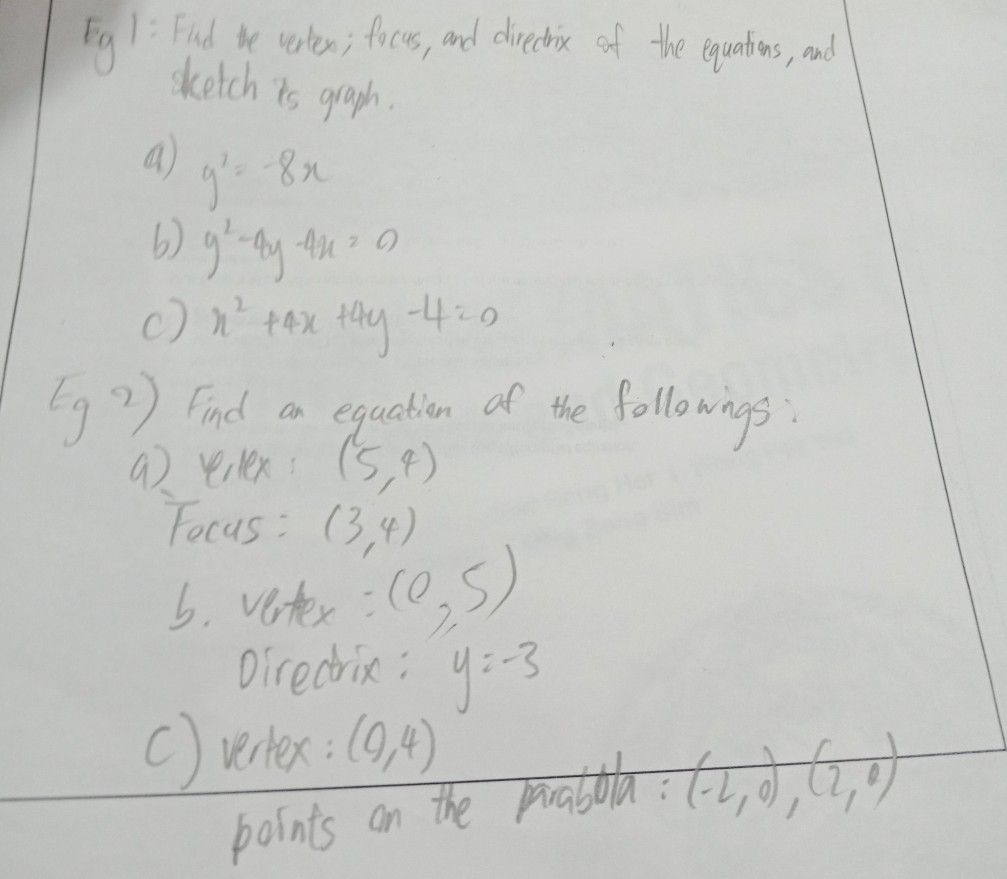 Eg 1: Find the vertex, focus, and directrix of the equations, and
sketch its graph.
a) y² = -8x
b) y² -4y -4x = 0
c) x² +4x +4y -4 = 0
Eg 2) Find an equation of the followings:
a) vertex: (5,4)
Focus: (3,4)
b. vertex: (0,5)
Directrix: y=-3
C) vertex: (0,4)
points on the parabola: (-2,0), (2,0)